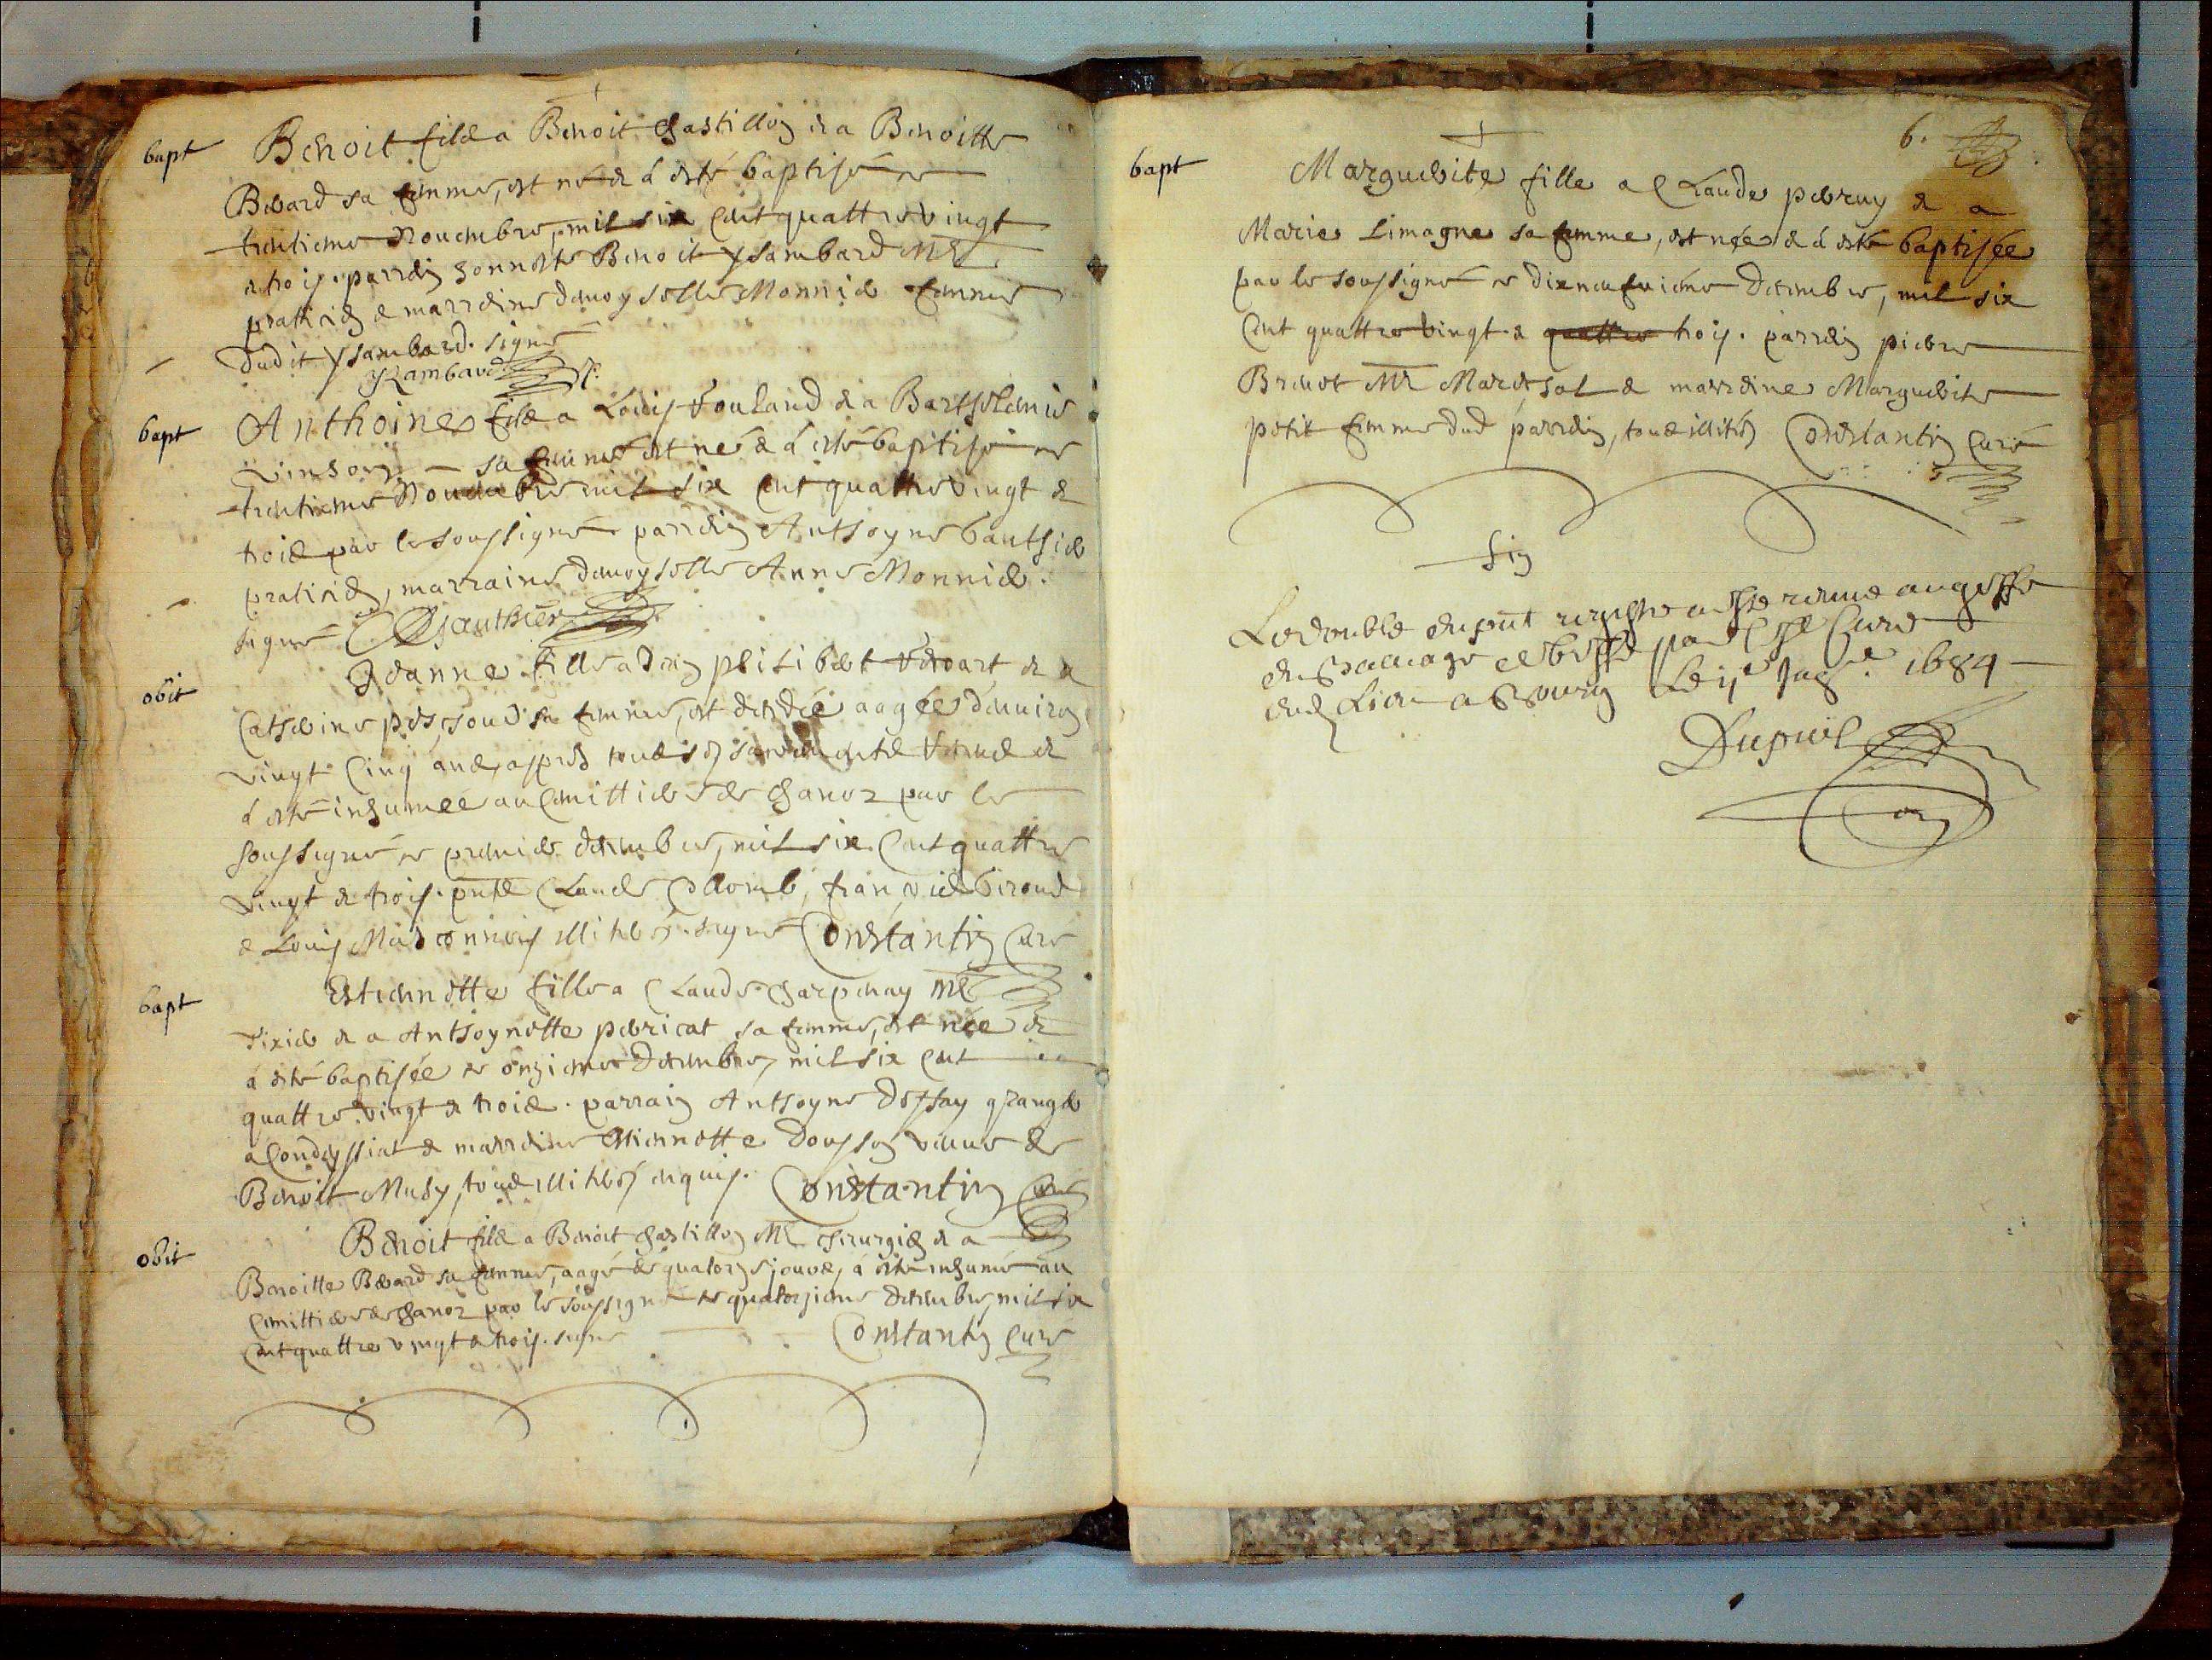 bapt Benoit filz a Benoit Chastillon et a Benoitte
Berard sa femme, est né et á esté baptisé ce
trentieme Novembre, mil six cent quattre vingt
et trois. parrein honneste Benoit ysambard Mre
praticien et marreine demoyselle Monnier femme
dudit ysambard. signé
ysambard
bapt Anthoine filz a Louis Fouland et a Barthelemie
sa femme est né et á esté baptisé ce
trentieme Novembre mil six cent quattre vingt et
trois par le soussigné parrein Anthoyne Gauthier
praticien, marraine demoyselle Anne Monnier.
signé Gauthier
obit Jeanne fille a petitbert et a
Catherine sa femme, est decedée aagée d'environ
vingt cinq ans, apres tous ses sacrements et
á esté inhumée au cemittiere de Chanoz par le
soussigné ce premier decembre, mil six cent quattre
vingt et trois. pntz Claude Collomb, françois Giroud
et Louis illiterez. signé Constantin Curé
bapt Estiennette fille a Claude Charpenay Me
tixier et a Anthoynette pericat sa femme, est née et
á esté baptisée ce onzieme Decembre, mil six cent
quattre vingt et trois. parrain Anthoyne Dessay granger
a Condeyssiat et marreine Estiennette Dousson veuve de
Benoit Musy, tous illiterez enquis. Constantin Curé
obit Benoit filz a Benoit Chastillon Me chirurgien et a
Benoitte Berard sa femme, aagé de quatorze jours, á esté inhumé au
Cemittiere de Chanoz par le soussigné ce quatorzieme decembre, mil six
Cent quattre vingt et trois. signé Constantin Curé
6.
bapt Marguerite fille a Claude perruy et a
Marie Limagne sa femme, est née et á esté baptisée
par le soussigné ce dixneufvieme Decembre, mil six
Cent quattre vingt et quattre trois. parrein pierre
Brevet Me Mareschal et marreine Marguerite
petit femme dud parrein, tous illiterez Constantin Curé
fin
Le double du pnt registre a esté remis au greffe
du Bailliage de Bresse par le sr Curé
dud Lieu a Bourg Le 1684
Dupuis